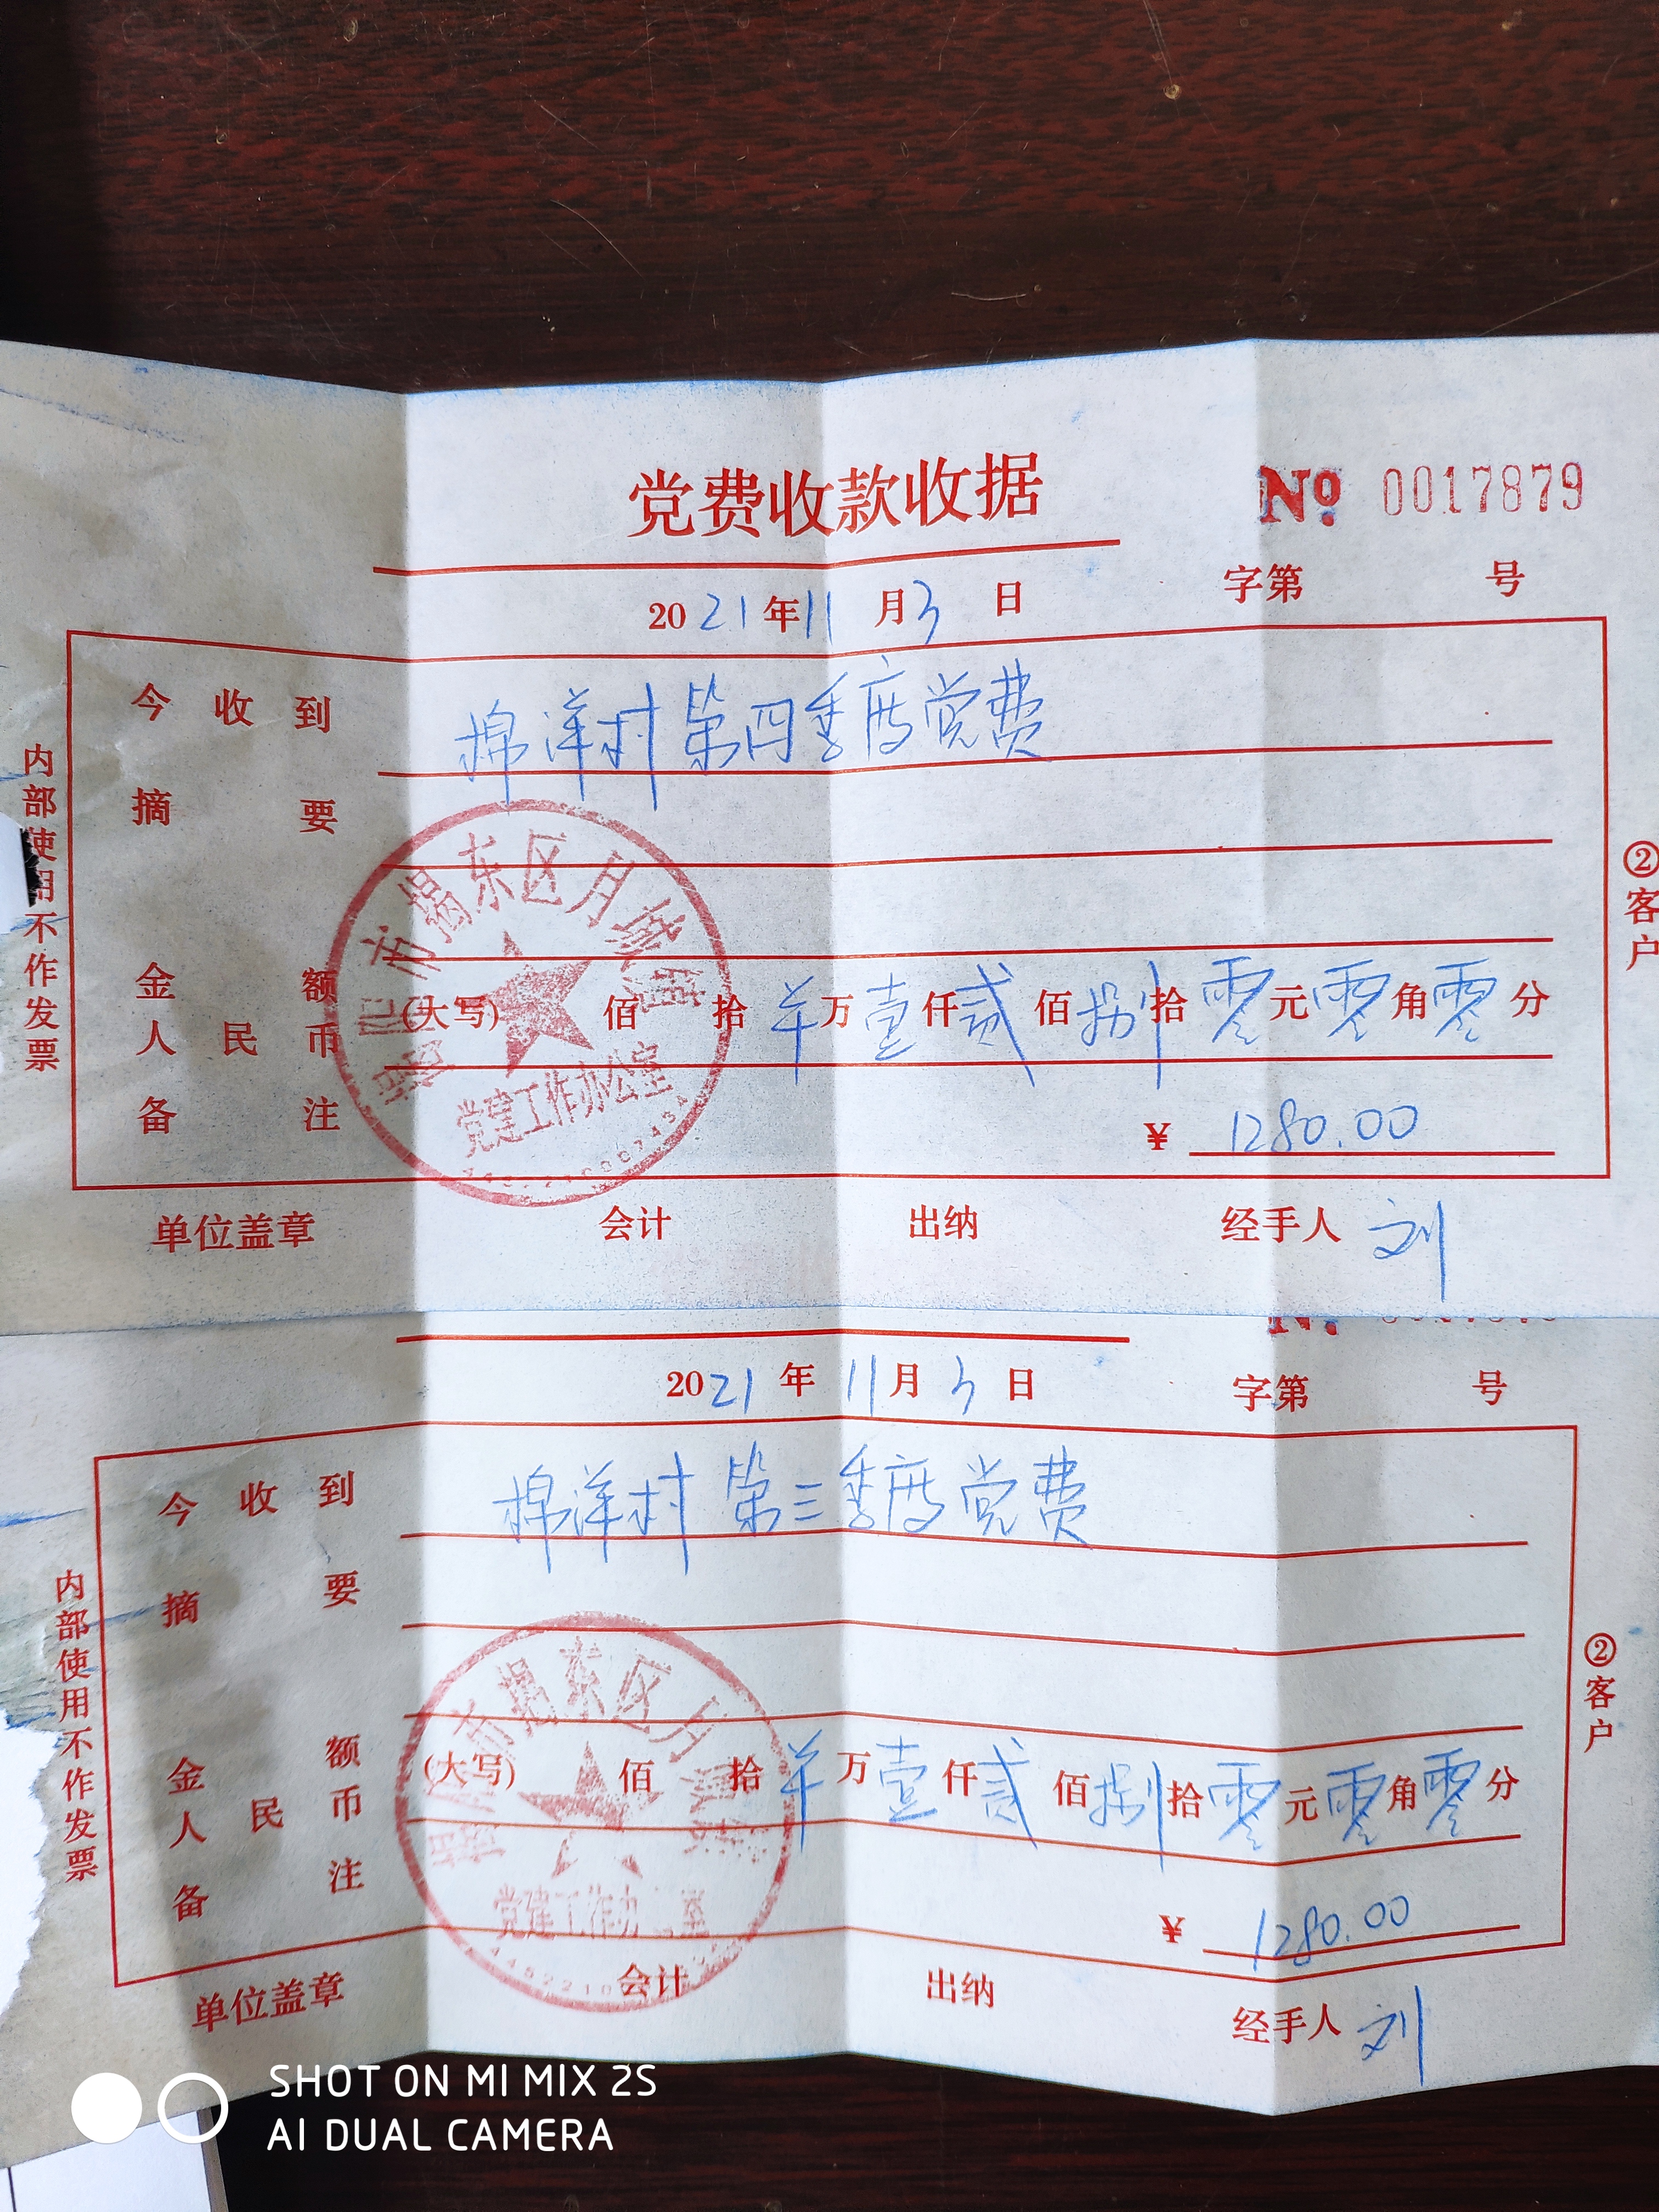 党费收款收据
№ 0017879
字第 号
2021年11月3日
今收到 棉洋村第四季度党费
摘要
金额
人民币
(大写) 佰 拾 羊万壹仟贰佰捌拾零元零角零分
备注
¥ 1280.00
单位盖章 会计 出纳 经手人 刘
内部使用不作发票
②客户
市揭东区月城镇
党建工作办公室
2021年11月3日
字第 号
今收到 棉洋村第三季度党费
摘要
金额
人民币
(大写) 佰 拾 羊万壹仟贰佰捌拾零元零角零分
备注
¥ 1280.00
单位盖章 会计 出纳 经手人 刘
内部使用不作发票
②客户
市揭东区月
党建工作办 室
SHOT ON MI MIX 2S
AI DUAL CAMERA